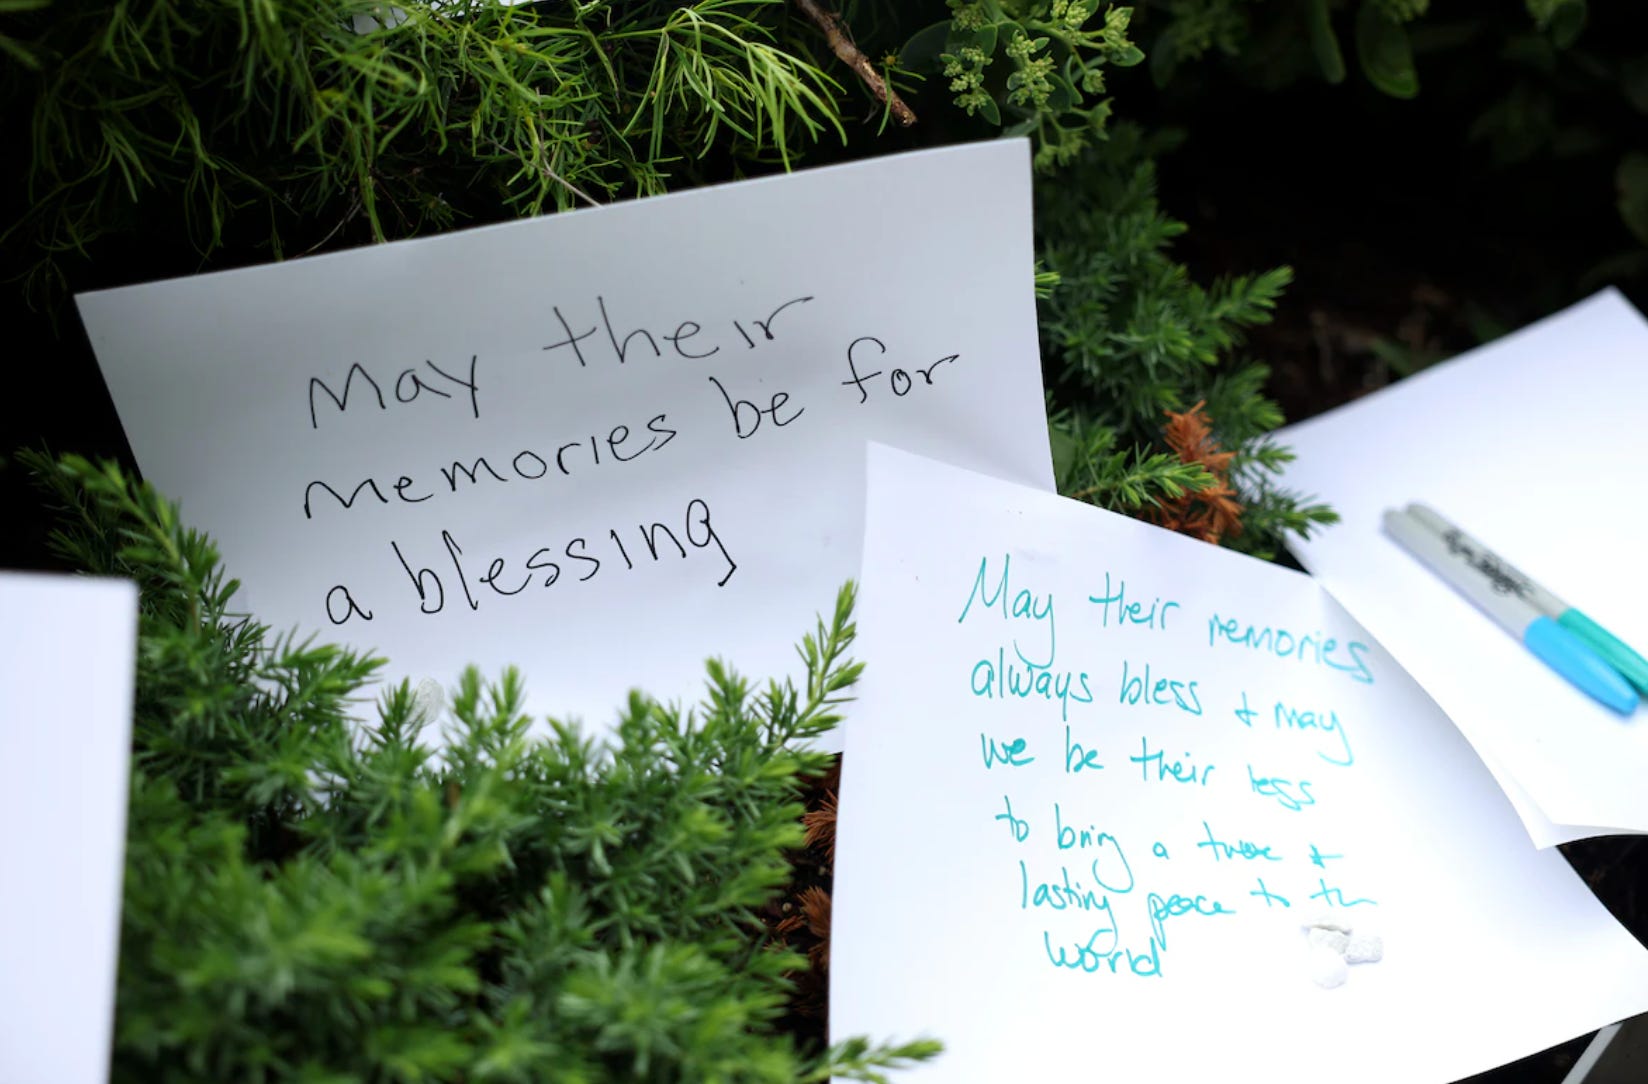 May their
memories be for
a blessing
May their memories
always bless & may
we be their
to bring a &
lasting peace to
world